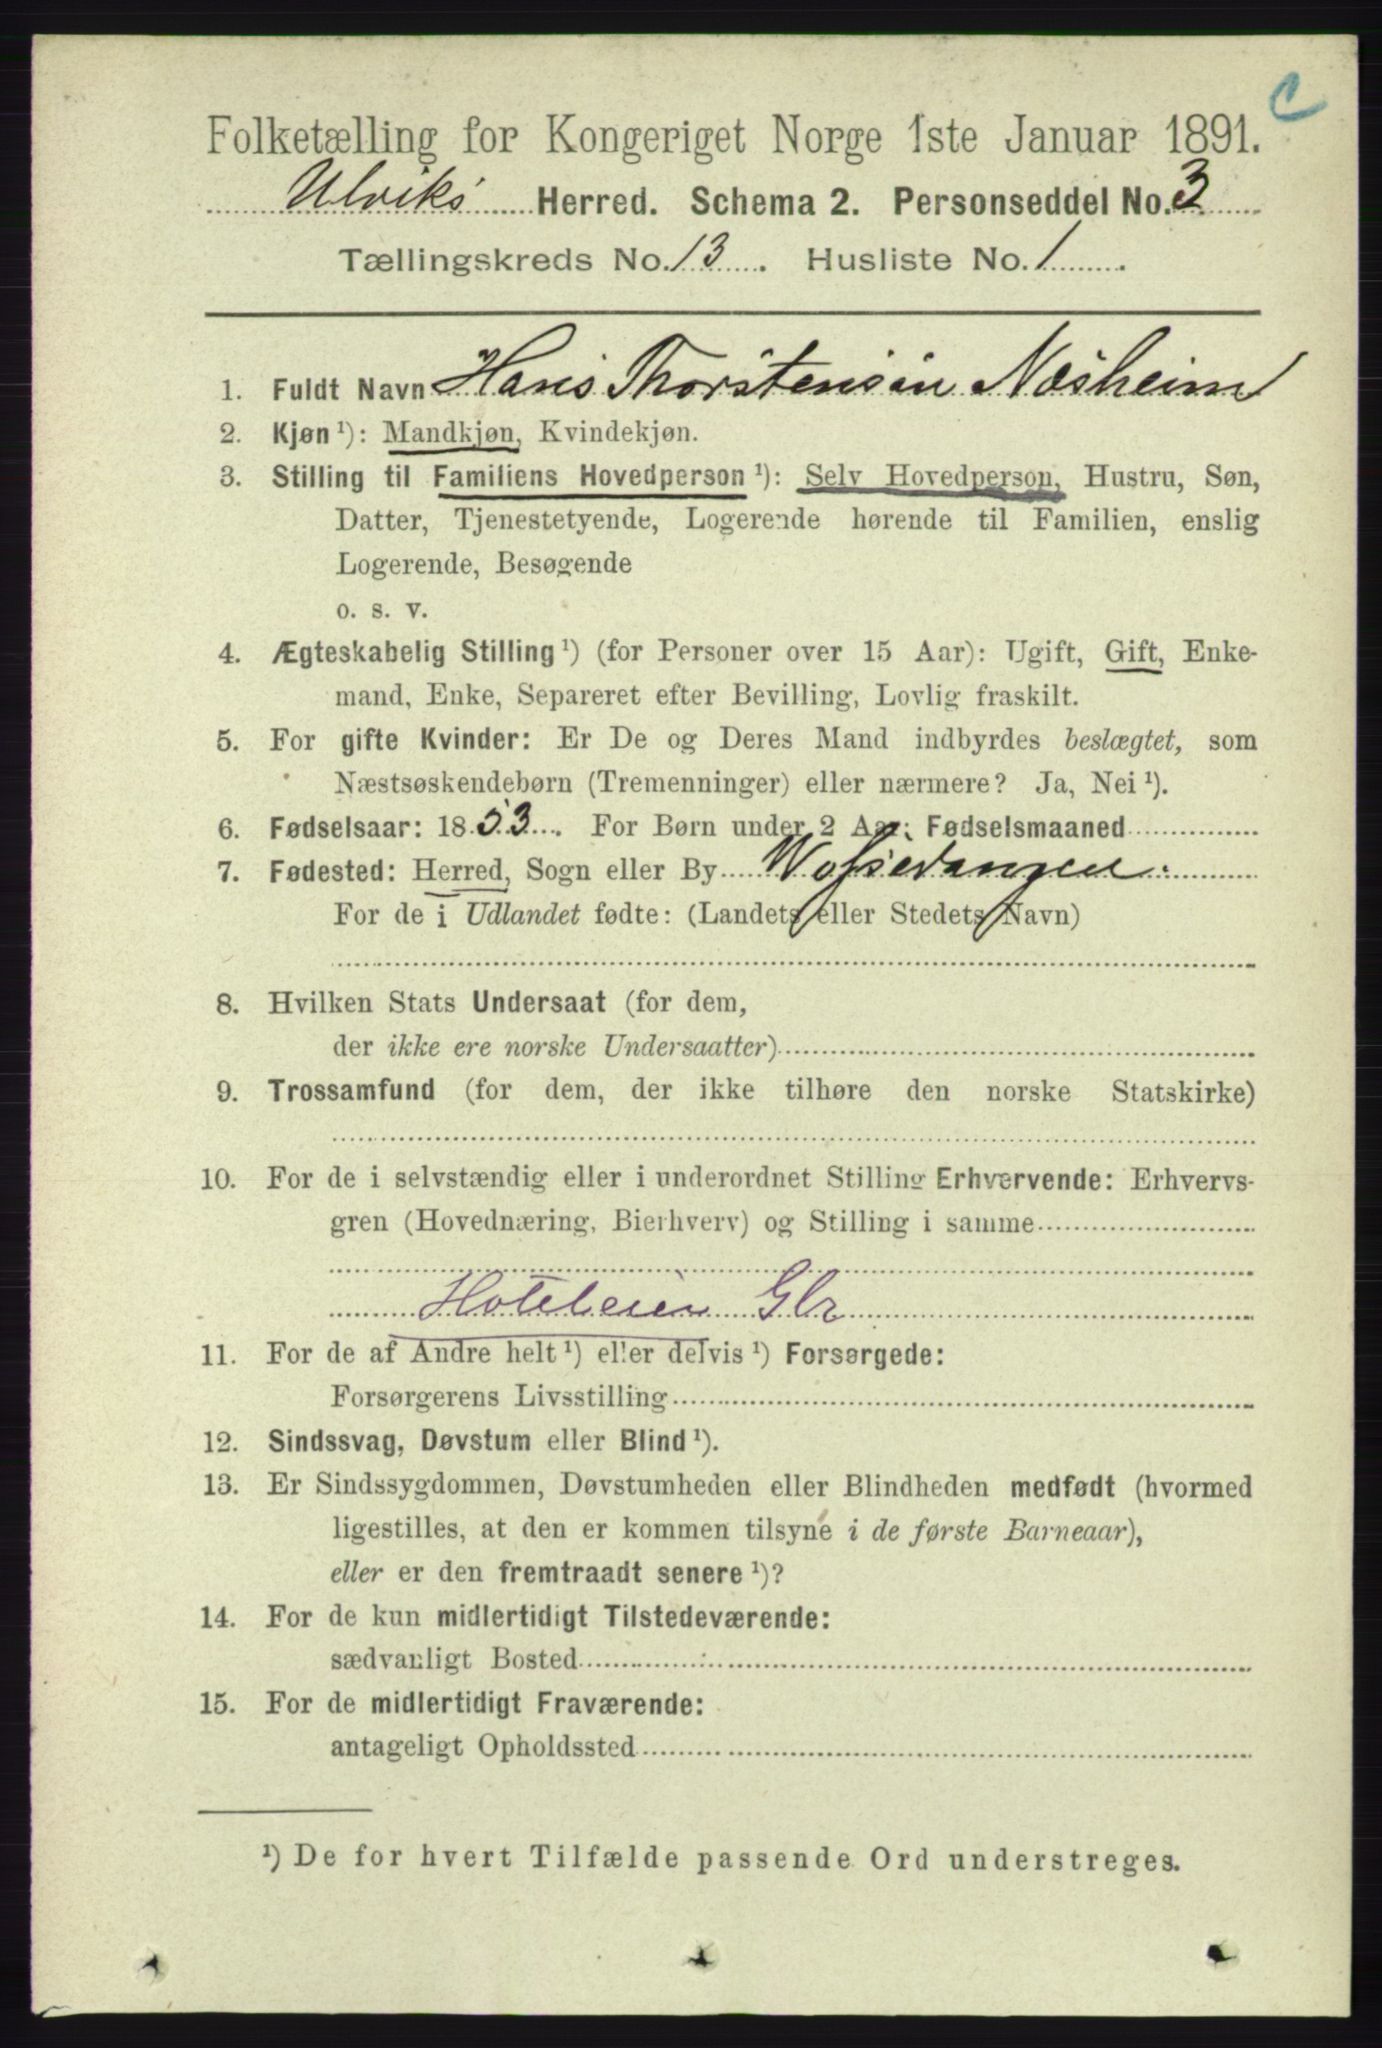 C
Folketælling for Kongeriget Norge 1ste Januar 1891.
Ulviks Herred. Schema 2. Personseddel No. 3
Tællingskreds No. 13. Husliste No. 1.
1. Fuldt Navn Hans Thorstensen Næsheim
2. Kjøn ¹): Mandkjøn, Kvindekjøn.
3. Stilling til Familiens Hovedperson ¹): Selv Hovedperson, Hustru, Søn,
Datter, Tjenestetyende, Logerende hørende til Familien, enslig
Logerende, Besøgende
o. s. v.
4. Ægteskabelig Stilling ¹) (for Personer over 15 Aar): Ugift, Gift, Enke-
mand, Enke, Separeret efter Bevilling, Lovlig fraskilt.
5. For gifte Kvinder: Er De og Deres Mand indbyrdes beslægtet, som
Næstsøskendebørn (Tremenninger) eller nærmere? Ja, Nei ¹).
6. Fødselsaar: 1853. For Børn under 2 Aar: Fødselsmaaned
7. Fødested: Herred, Sogn eller By Wossevangen
For de i Udlandet fødte: (Landets eller Stedets Navn)
8. Hvilken Stats Undersaat (for dem,
der ikke ere norske Undersaatter)
9. Trossamfund (for dem, der ikke tilhøre den norske Statskirke)
10. For de i selvstændig eller i underordnet Stilling Erhvervende: Erhvervs-
gren (Hovednæring, Bierhverv) og Stilling i samme
Hoteleier Gbr
11. For de af Andre helt ¹) eller delvis ¹) Forsørgede:
Forsørgerens Livsstilling
12. Sindssvag, Døvstum eller Blind ¹).
13. Er Sindssygdommen, Døvstumheden eller Blindheden medfødt (hvormed
ligestilles, at den er kommen tilsyne i de første Barneaar),
eller er den fremtraadt senere ¹)?
14. For de kun midlertidigt Tilstedeværende:
sædvanligt Bosted
15. For de midlertidigt Fraværende:
antageligt Opholdssted
¹) De for hvert Tilfælde passende Ord understreges.